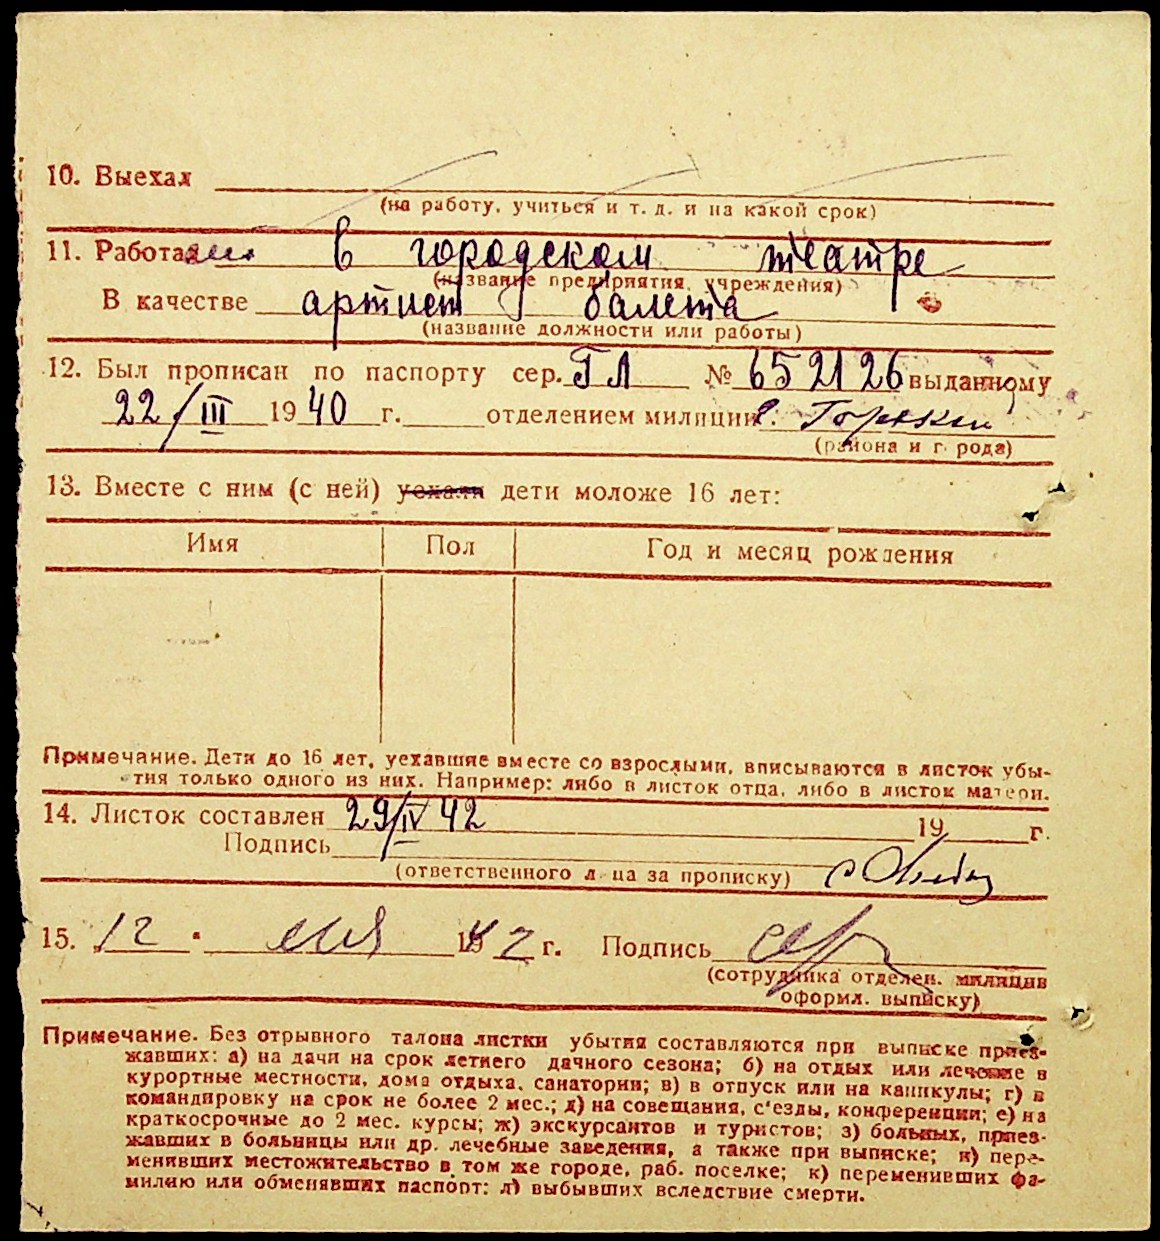 10. Выехал
(на работу, учиться и т. д. и на какой срок)
11. Работал в городском театре
(название предприятия, учреждения)
В качестве артист балета
(название должности или работы)
12. Был прописан по паспорту сер. ГЛ № 652126 выданному
22/III 1940 г. отделением милиции г. Горький
(района и города)
13. Вместе с ним (с ней) уехали дети моложе 16 лет:
Имя Пол Год и месяц рождения
Примечание. Дети до 16 лет, уехавшие вместе со взрослыми, вписываются в листок убы-
тия только одного из них. Например: либо в листок отца, либо в листок матери.
14. Листок составлен 29/IV 42 19 г.
Подпись
(ответственного лица за прописку)
15. 12 · мая 1942 г. Подпись
(сотрудника отделен. милиции
оформл. выписку)
Примечание. Без отрывного талона листки убытия составляются при выписке приез-
жавших: а) на дачи на срок летнего дачного сезона; б) на отдых или лечение в
курортные местности, дома отдыха, санатории; в) в отпуск или на каникулы; г) в
командировку на срок не более 2 мес.; д) на совещания, с'езды, конференции; е) на
краткосрочные до 2 мес. курсы; ж) экскурсантов и туристов; з) больных, приез-
жавших в больницы или др. лечебные заведения, а также при выписке; и) пере-
менивших местожительство в том же городе, раб. поселке; к) переменивших фа-
милию или обменявших паспорт; л) выбывших вследствие смерти.